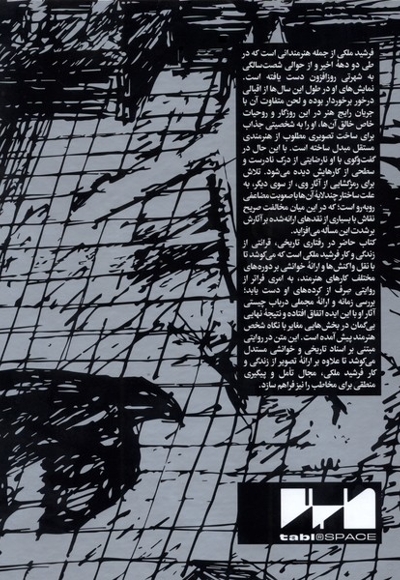 فرشید ملکی از جمله هنرمندانی است که در
طی دو دههٔ اخیر و از حوالی شصت‌سالگی
به شهرتی روزافزون دست یافته است.
نمایش‌های او در طول این سال‌ها از اقبالی
درخور برخوردار بوده و لحن متفاوت آن با
جریان رایج هنر در این روزگار و روحیات
خاص خالق آن‌ها، او را به شخصیتی جذاب
برای ساخت تصویری مطلوب از هنرمندی
مستقل مبدل ساخته است. با این حال در
گفت‌وگوی با او نارضایتی از درک نادرست و
سطحی از کارهایش دیده می‌شود. تلاش
برای رمزگشایی از آثار وی، از سوی دیگر، به
علت ساختار چندلایهٔ آن‌ها با صعوبت مضاعفی
روبه‌رو است؛ که در این میان مخالفت صریح
نقاش با بسیاری از نقدهای ارائه‌شده بر آثارش
بر شدت این مسأله می‌افزاید.
کتاب حاضر در رفتاری تاریخی، قرائتی از
زندگی و کار فرشید ملکی است که می‌کوشد تا
با نقل واکنش‌ها و ارائهٔ خوانشی بر دوره‌های
مختلف کارهای هنرمند، به امری فراتر از
روایتی صرف از کرده‌های او دست یابد؛
بررسی زمانه و ارائهٔ مجملی درباب چیستی
آثار او با این ایده اتفاق افتاده و نتیجهٔ نهایی
بی‌گمان در بخش‌هایی مغایر با نگاه شخص
هنرمند پیش آمده است. این متن در روایتی
مبتنی بر اسناد تاریخی و خوانشی مستدل
می‌کوشد تا علاوه بر ارائهٔ تصویر از زندگی و
کار فرشید ملکی، مجال تأمل و پیگیری
منطقی برای مخاطب را نیز فراهم سازد.
tabl@SPACE